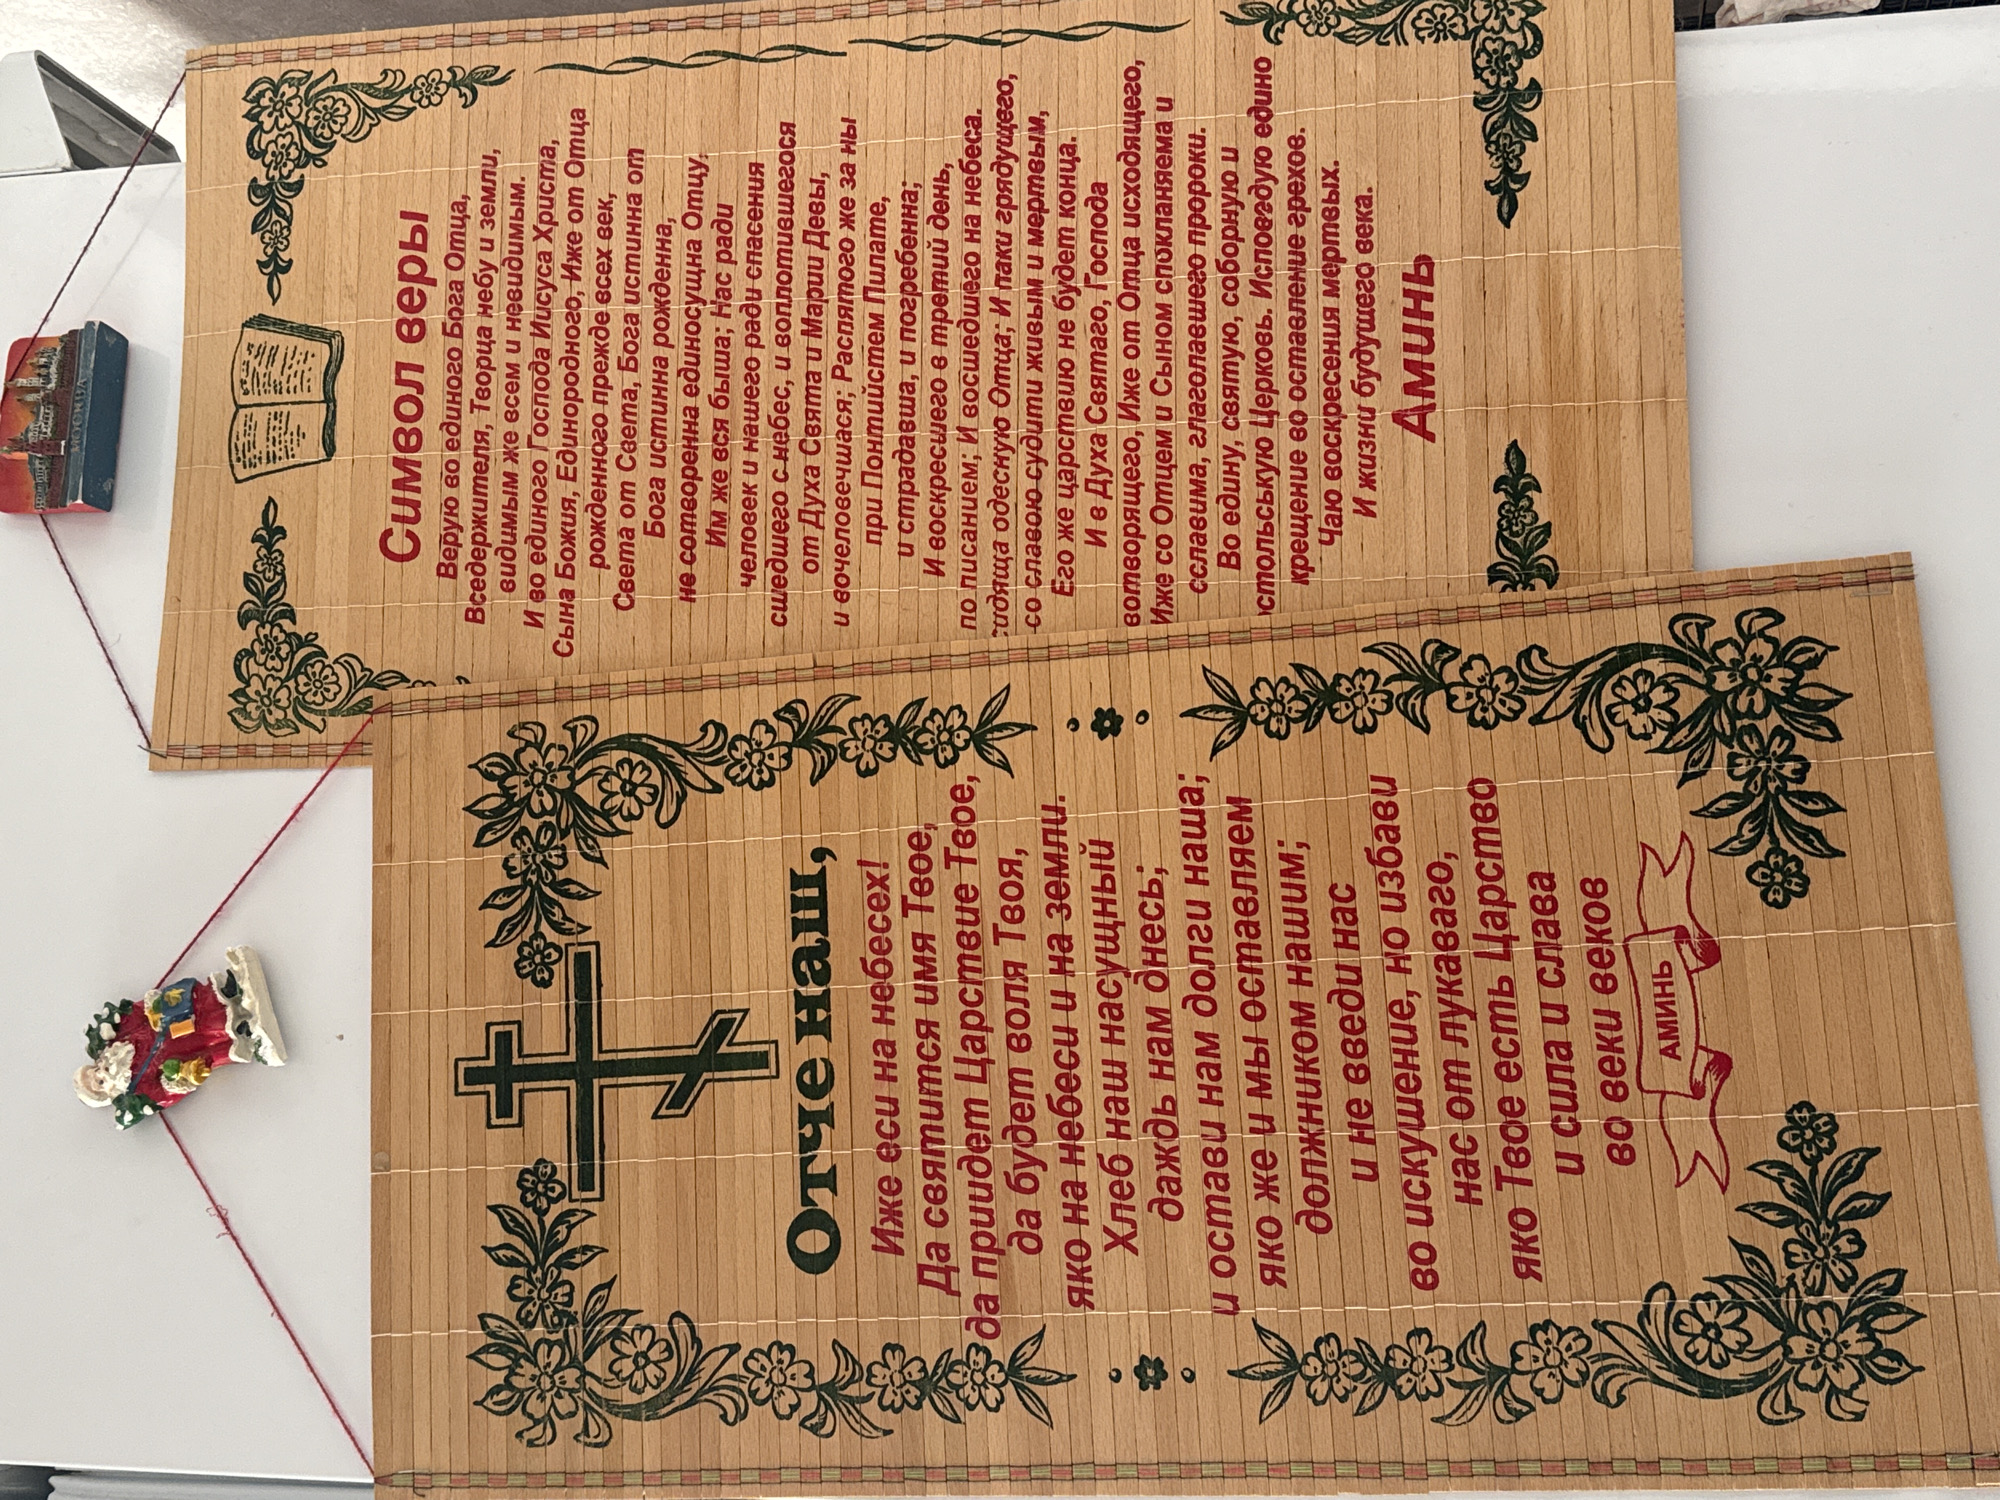 МОСКВА
Символ веры
Верую во единого Бога Отца,
Вседержителя, Творца небу и земли,
видимым же всем и невидимым.
И во единого Господа Иисуса Христа,
Сына Божия, Единородного, Иже от Отца
рожденного прежде всех век,
Света от Света, Бога истинна от
Бога истинна рожденна,
не сотворенна единосущна Отцу,
Им же вся быша; Нас ради
человек и нашего ради спасения
сшедшего с небес, и воплотившегося
от Духа Свята и Марии Девы,
и вочеловечшася; Распятого же за ны
при Понтийстем Пилате,
и страдавша, и погребенна;
И воскресшего в третий день,
по писанием; И восшедшего на небеса.
сидяща одесную Отца; И паки грядущего,
со славою судити живым и мертвым,
Его же царствию не будет конца.
И в Духа Святаго, Господа
вотворящего, Иже от Отца исходящего,
Иже со Отцем и Сыном спокланяема и
сславима, глаголавшего пророки.
Во едину, святую, соборную и
стольскую Церковь. Исповедую едино
крещение во оставление грехов.
Чаю воскресения мертвых.
И жизни будущего века.
Аминь
Отче наш,
Иже еси на небесех!
Да святится имя Твое,
да приидет Царствие Твое,
да будет воля Твоя,
яко на небеси и на земли.
Хлеб наш насущный
даждь нам днесь;
и остави нам долги наша;
яко же и мы оставляем
должником нашим;
и не введи нас
во искушение, но избави
нас от лукаваго,
яко Твое есть Царство
и сила и слава
во веки веков
АМИНЬ